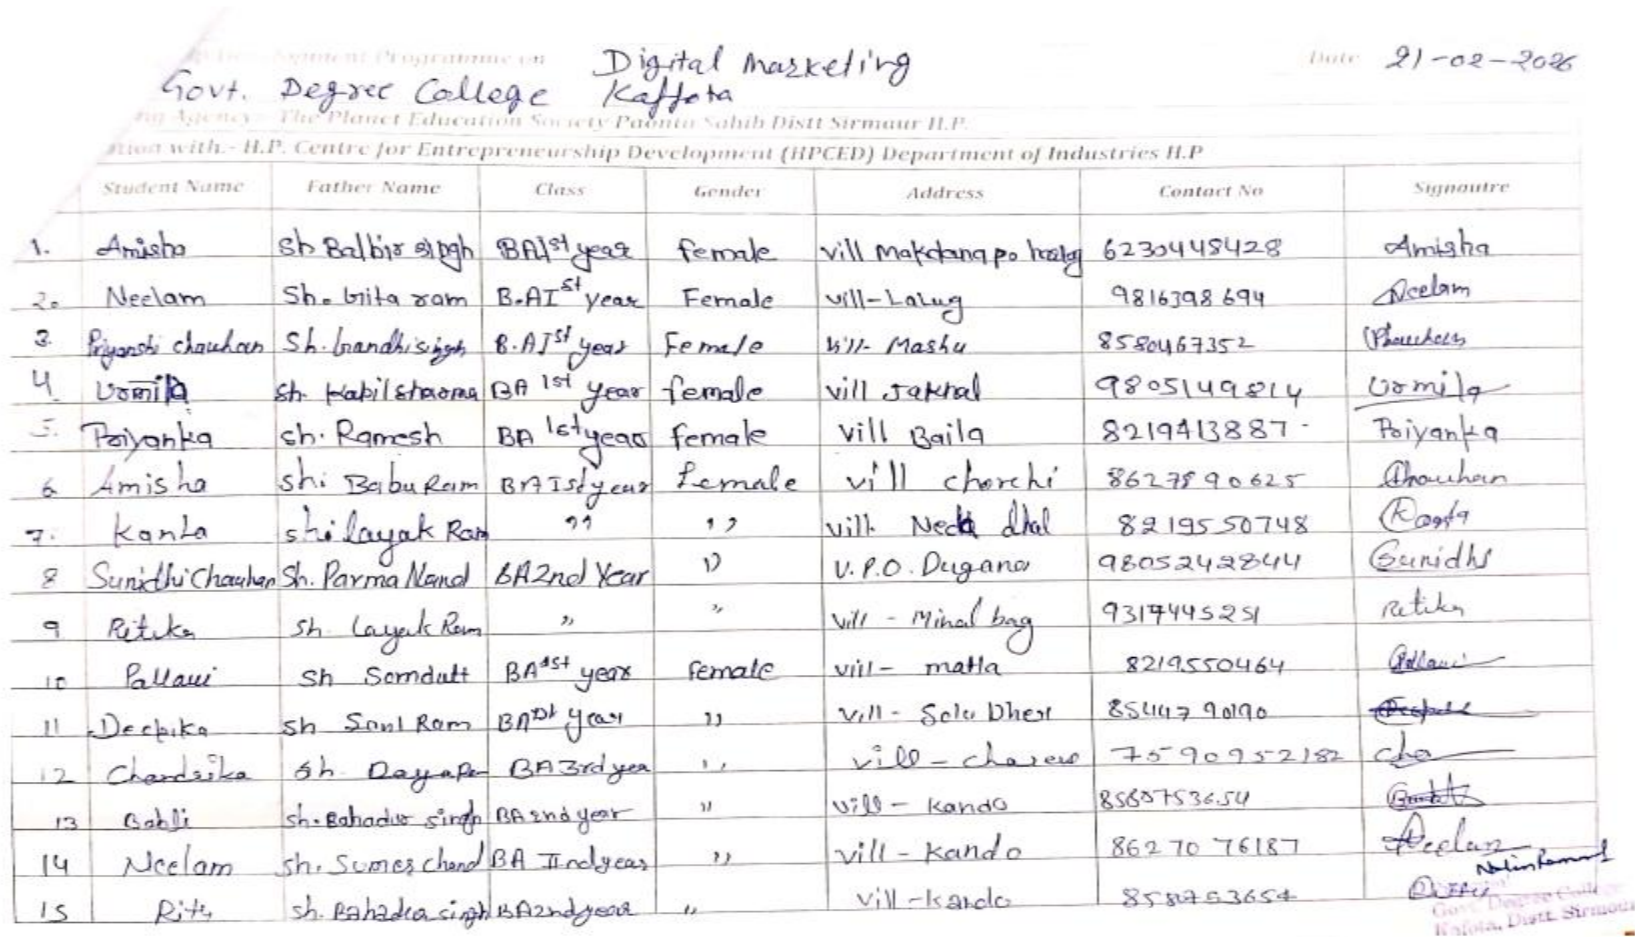 Programme on Digital Marketing Date 21-02-2026
Govt. Degree College Kaffota
Agency - The Planet Education Society Paonta Sahib Distt Sirmaur H.P.
with:- H.P. Centre for Entrepreneurship Development (HPCED) Department of Industries H.P
Student Name Father Name Class Gender Address Contact No Signautre
1. Amisha Sh Balbir singh BA1st year female vill Makdana po 6230448428 Amisha
2. Neelam Sh. Gita ram B.A I st year Female vill-Lalug 9816398694 Neelam
3. Priyanshi chauhan Sh. Gandhi singh B.A Ist year Female vill- Mashu 8580467352
4. Urmila sh. Kapil sharma BA 1st year female vill Jakhal 9805149814 Urmila
5. Priyanka sh. Ramesh BA 1st year female vill Baila 8219413887 Priyanka
6. Amisha shi Babu Ram BA Ist year Female vill chorchi 8627890625 Chauhan
7. Kanta shi layak Ram " " vill. dhal 8219550748 Kanta
8 Sunidhi Chauhan Sh. Parma Nand BA 2nd Year " V.P.O. Dugana 9805242844 Sunidhi
9 Ritika Sh. Layak Ram " " vill - Minal bag 9317445251 Ritika
10 Pallavi Sh Somdutt BA 1st year female vill- matla 8219550464 Pallavi
11 Deepika Sh Sant Ram BA year " vill - 8544790190
12 Chandrika Sh. BA 3rd year " vill - 7590952182 Cha
13 Babli sh. Bahadur singh BA 2nd year " vill - Kando
14 Neelam sh. Sumer chand BA IInd year " vill - Kando 8627076187 Neelam
15 Ritu sh. Bahadur singh BA 2nd year " vill - Kando 858753654
Govt. Degree College
Kafota, Distt. Sirmour